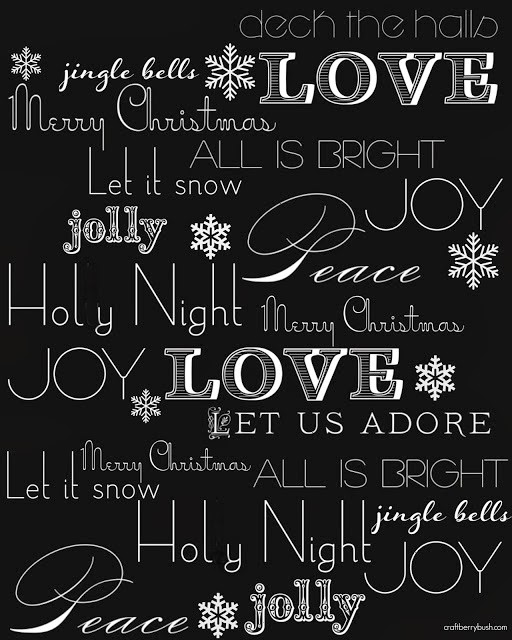 deck the halls
jingle bells
LOVE
Merry Christmas
ALL IS BRIGHT
Let it snow
JOY
jolly
Peace
Holy Night
Merry Christmas
JOY
LOVE
LET US ADORE
Merry Christmas
ALL IS BRIGHT
Let it snow
jingle bells
Holy Night
JOY
Peace
jolly
craftberrybush.com